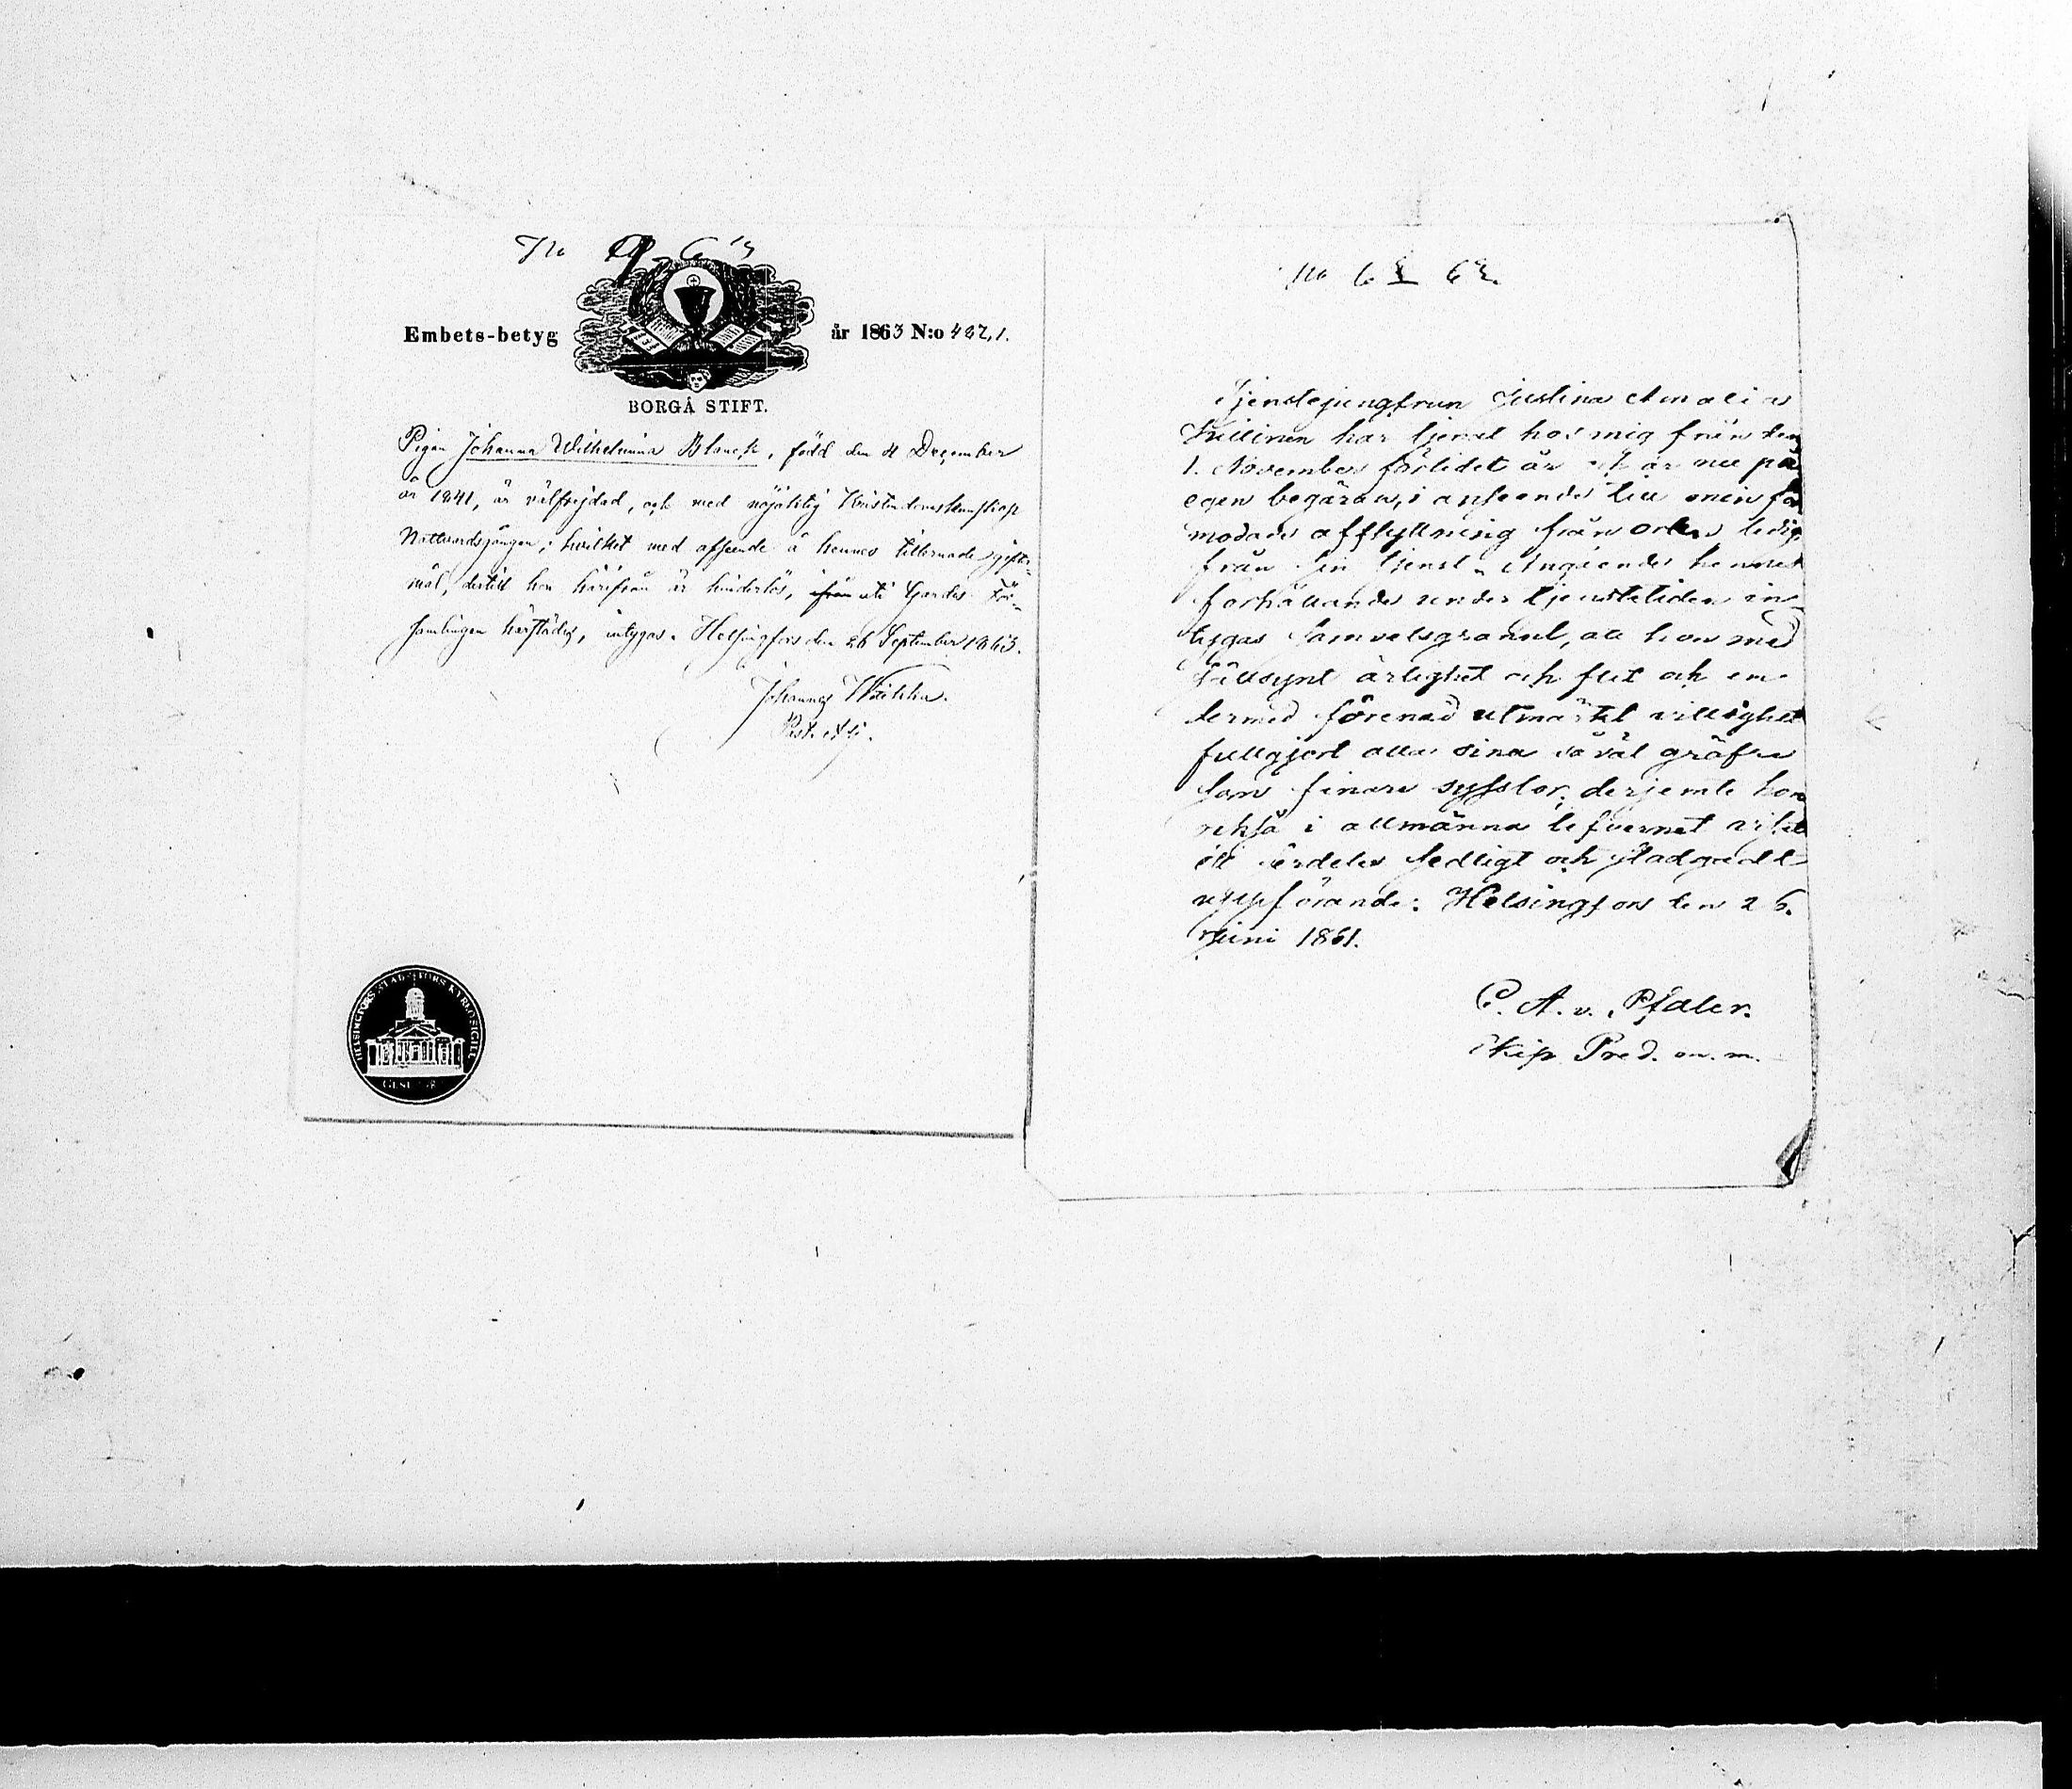 No 9. 63
Embets-betyg år 1863 N:o 487,1.
BORGÅ STIFT.
Pigan Johanna Wilhelmina Blanck, född den 4 December
år 1841, är välfrejdad, och med nöjaktig Kristendomskunskap
Nattvardsgången; hvilket med afseende å hennes tillernade gifter-
mål, dertill hon härifrån är hinderlös, ifrån uti Gardes För-
samlingen härstädes, intygas. Helsingfors den 26 September 1863.
Johannes
Past. Adj.
HELSINGFORS STAD KYRKOSIGILL
No 6 62.
Tjenstejungfrun Justina Amalia
har tjenat hos mig från den
1. November förlidet år är nu på
egen begäran, i anseende till min för
modade afflyttning från orten ledig
från sin tjenst. Angående hennes
förhållande under tjenstetiden in-
tygas samvetsgrannt, att hon med
sällsynt ärlighet och flit och en
dermed förenad utmärkt villighet
fullgjort alla sina så väl gröfre
som finare sysslor; derjemte hon
också i allmänna lefvernet visat
ett särdeles sedligt och stadgadt
uppförande: Helsingfors den 26.
Juni 1861.
C. A. v. Pfaler.
Pred. m. m.